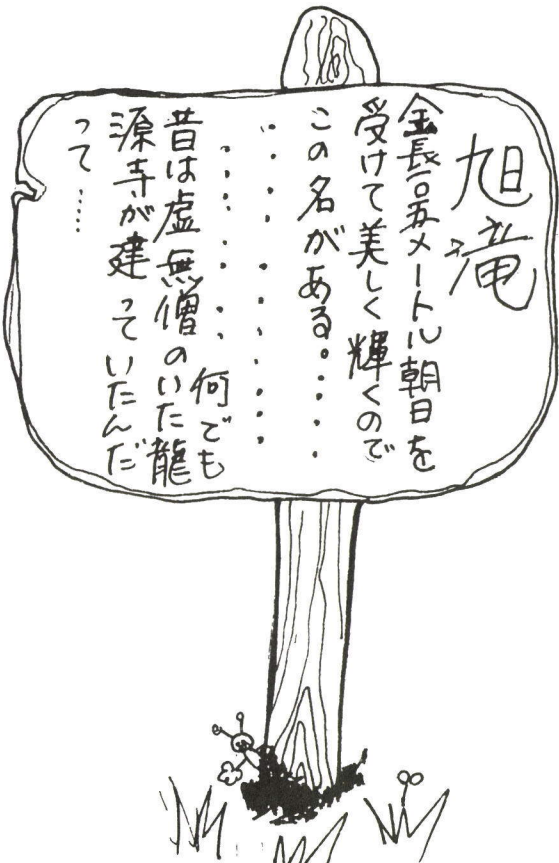 旭滝
全長一〇五メートル朝日を
受けて美しく輝くので
この名がある。・・・・
・・・・・・・・・・
・・・・・・・何でも
昔は虚無僧のいた龍
源寺が建っていたんだ
って……